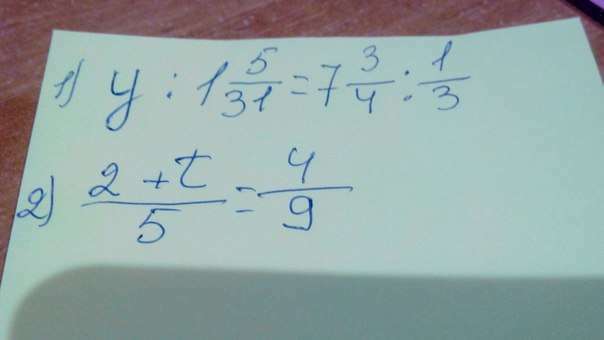 1) y : 1 5/31 = 7 3/4 : 1/3
2) (2 + t)/5 = 4/9